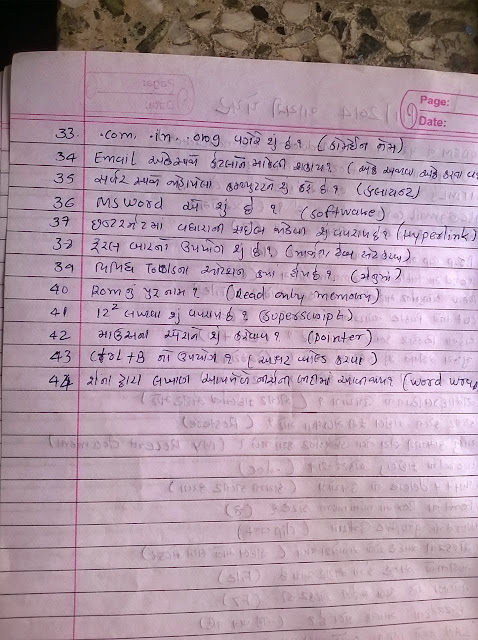 Page:
Date:
33. .com, .in, .org વગેરે શું છે? (ડોમેઈન નેમ)
34 Email એકસાથે કેટલાને મોકલી શકાય? (એક અથવા એક કરતા વધુ
35 સર્વર સાથે જોડાયેલા કમ્પ્યુટરને શું કહે છે? (કલાયન્ટ)
36 MS Word એ શું છે? (Software)
37 ઈન્ટરનેટમાં વધારાની ફાઈલ જોડવા શું વપરાય છે? (Hyperlink)
38 રૂલર બારનો ઉપયોગ શું છે?
39 વિવિધ Toolsના ઓપ્શન કયા હોય છે? (મેનુમાં)
40 Rom નું પુરુ નામ? (Read only memory)
41 12² લખવા શું વપરાય છે? (Superscript)
42 માઉસના એરોને શું કહેવાય? (Pointer)
43 Ctrl + B નો ઉપયોગ? (અક્ષર બોલ્ડ કરવા)
44 શેના દ્વારા લખાણ આપમેળે નીચેની લીટીમાં આવી જાય? (Word wrap